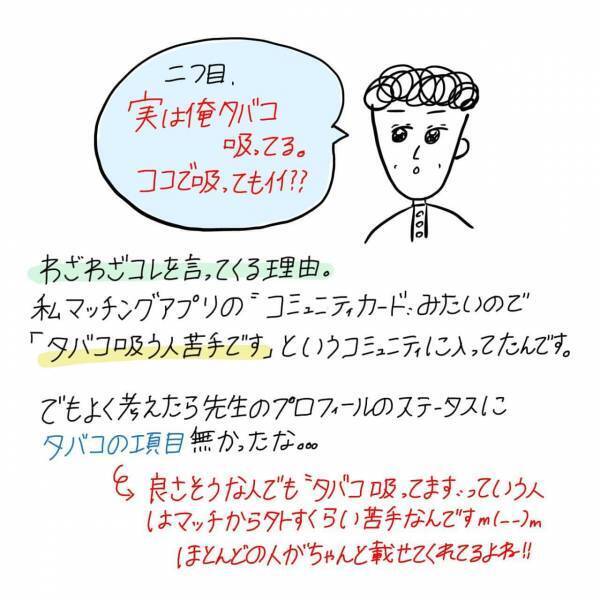 二つ目、
実は俺タバコ
吸ってる。
ココで吸ってもイイ??
わざわざコレを言ってくる理由。
私マッチングアプリの〝コミュニティカード〟みたいので
「タバコ吸う人苦手です」というコミュニティに入ってたんです。
でもよく考えたら先生のプロフィールのステータスに
タバコの項目無かったな...
良さそうな人でも〝タバコ吸ってます〟っていう人
はマッチから外すくらい苦手なんですm(--)m
ほとんどの人がちゃんと載せてくれてるよね!!